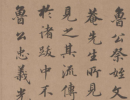 魯公祭姪文
菴先生所見
見之其流傳
於諸跋中不
魯公忠義光